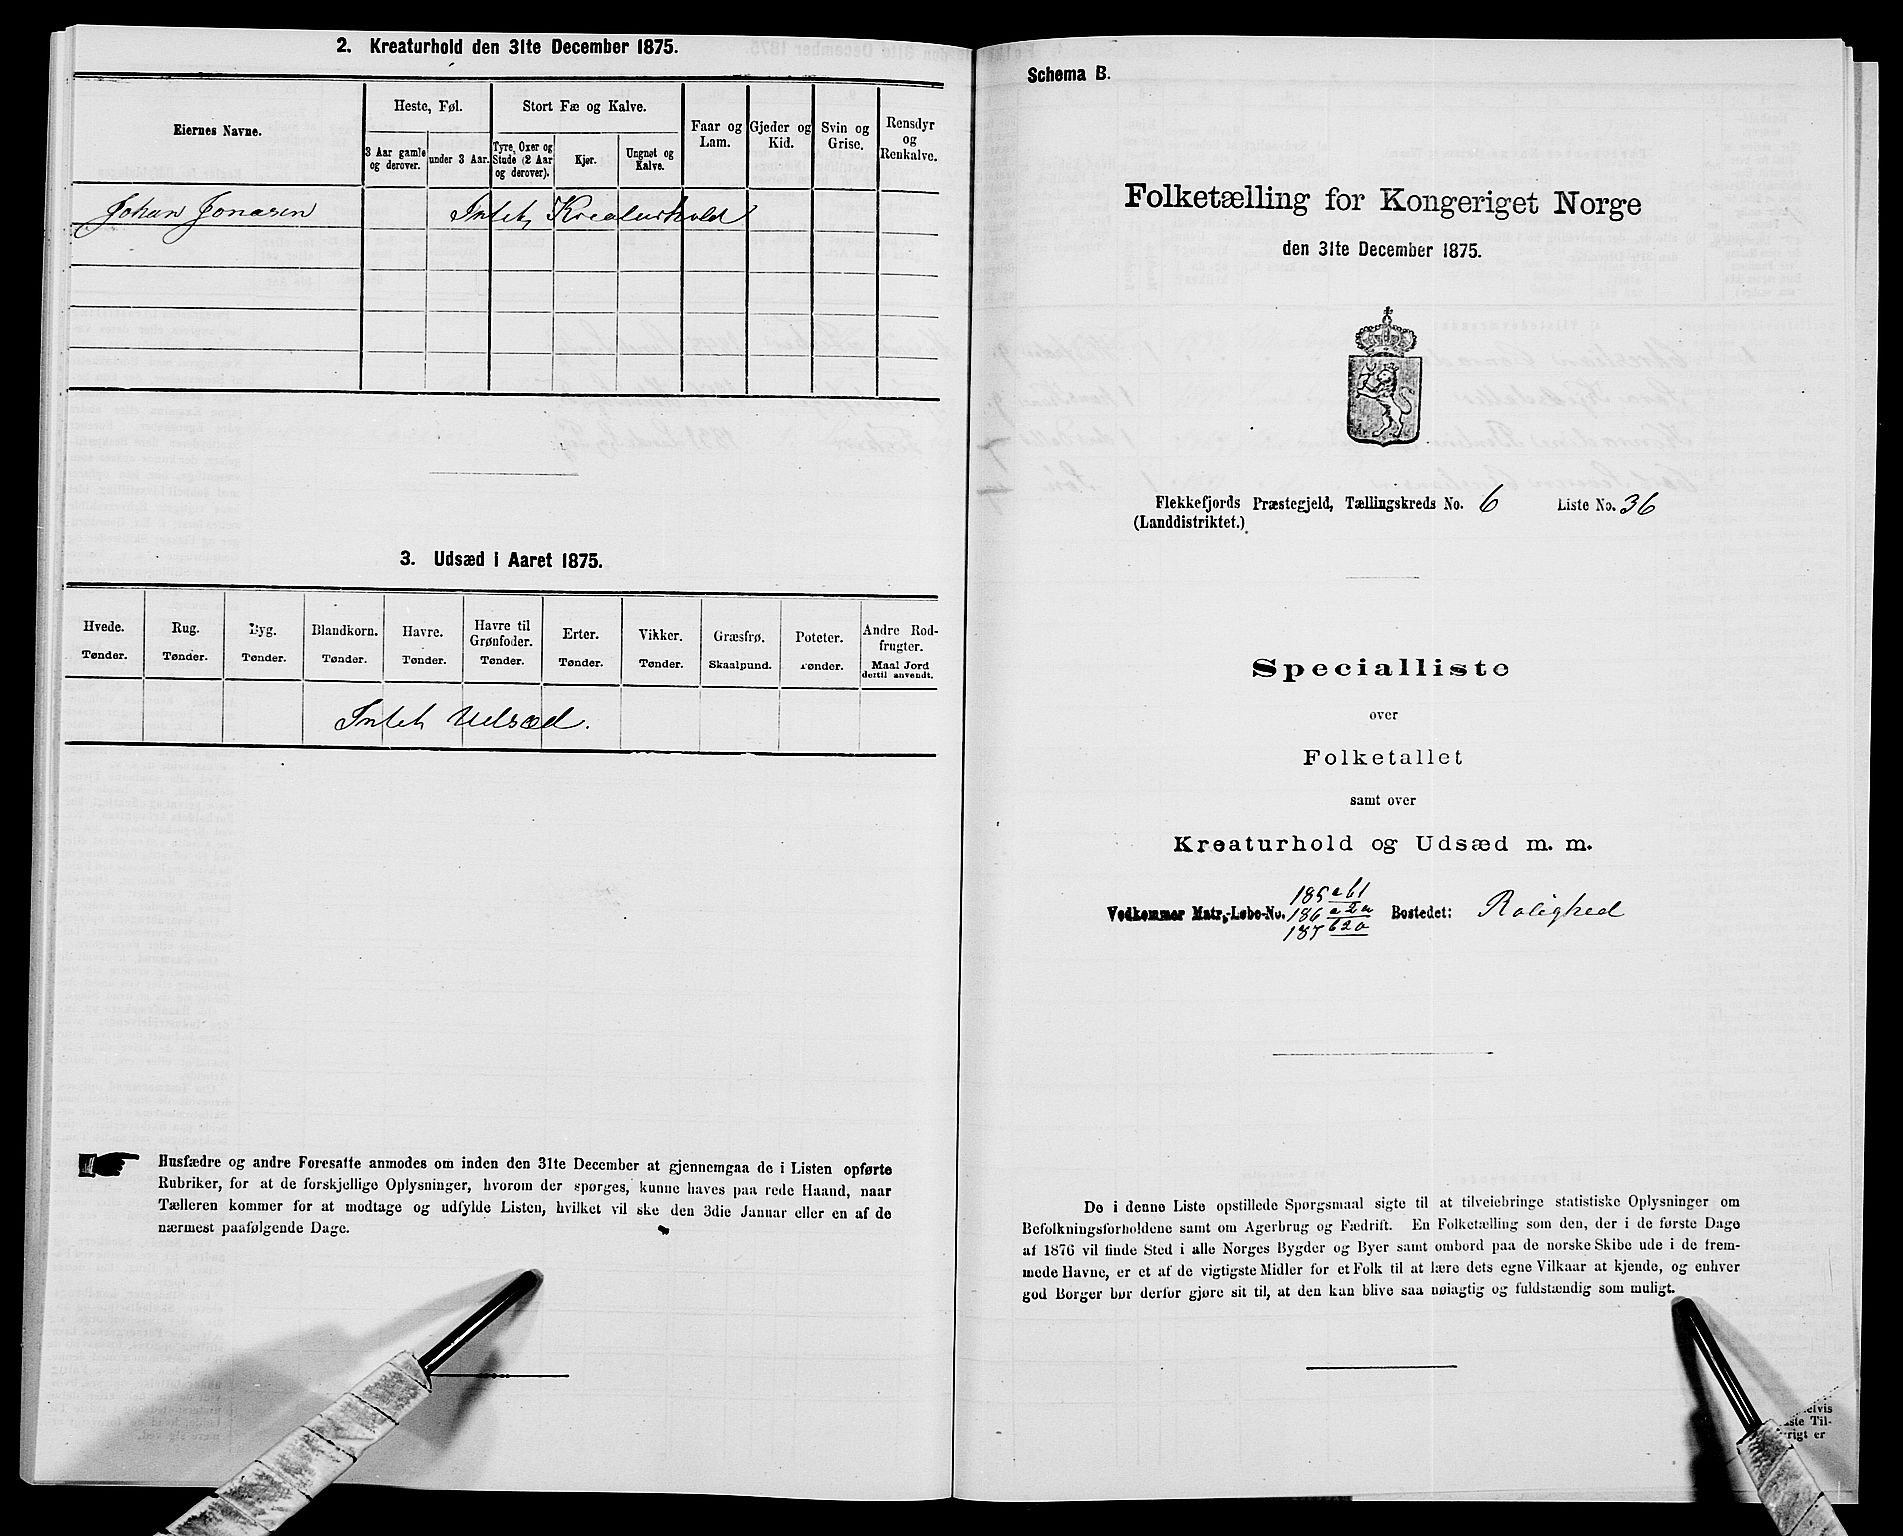 2. Kreaturhold den 31te December 1875.
Eiernes Navne.
Heste, Føl.
3 Aar gamle og derover.
under 3 Aar.
Stort Fæ og Kalve.
Tyre, Oxer og Stude (2 Aar og derover).
Kjør.
Ungnøt og Kalve.
Faar og Lam.
Gjeder og Kid.
Svin og Grise.
Rensdyr og Renkalve.
Johan Jonasen Intet Kreaturhold
3. Udsæd i Aaret 1875.
Hvede. Tønder.
Rug. Tønder.
Byg. Tønder.
Blandkorn. Tønder.
Havre. Tønder.
Havre til Grønfoder. Tønder.
Erter. Tønder.
Vikker. Tønder.
Græsfrø. Skaalpund.
Poteter. Tønder.
Andre Rodfrugter. Maal Jord dertil anvendt.
Intet Udsæd.
Husfædre og andre Foresatte anmodes om inden den 31te December at gjennemgaa de i Listen opførte
Rubriker, for at de forskjellige Oplysninger, hvorom der spørges, kunne haves paa rede Haand, naar
Tælleren kommer for at modtage og udfylde Listen, hvilket vil ske den 3die Januar eller en af de
nærmest paafølgende Dage.
Schema B.
Folketælling for Kongeriget Norge
den 31te December 1875.
Flekkefjords Præstegjeld, Tællingskreds No. 6 Liste No. 36
(Landdistriktet.)
Specialliste
over
Folketallet
samt over
Kreaturhold og Udsæd m. m.
185 a b1
Vedkommer Matr.-Løbe-No. 186 a 2 a Bostedet: Rolighed
187 b 2 a
De i denne Liste opstillede Spørgsmaal sigte til at tilveiebringe statistiske Oplysninger om
Befolkningsforholdene samt om Agerbrug og Fædrift. En Folketælling som den, der i de første Dage
af 1876 vil finde Sted i alle Norges Bygder og Byer samt ombord paa de norske Skibe ude i de frem-
mede Havne, er et af de vigtigste Midler for et Folk til at lære dets egne Vilkaar at kjende, og enhver
god Borger bør derfor gjøre sit til, at den kan blive saa nøiagtig og fuldstændig som muligt.